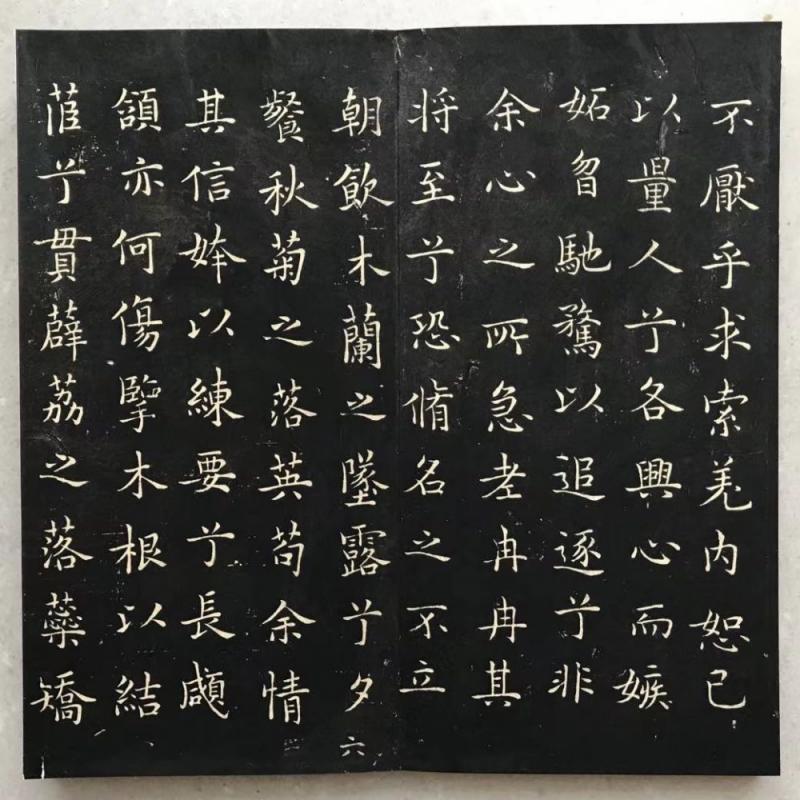 不厭乎求索羌内恕已
以量人兮各興心而嫉
妬曶馳騖以追逐兮非
余心之所急老冉冉其
将至兮恐脩名之不立
朝飲木蘭之墜露兮夕
六
餐秋菊之落英苟余情
其信姱以練要兮長顑
頷亦何傷擥木根以結
茝兮貫薜荔之落蘂矯